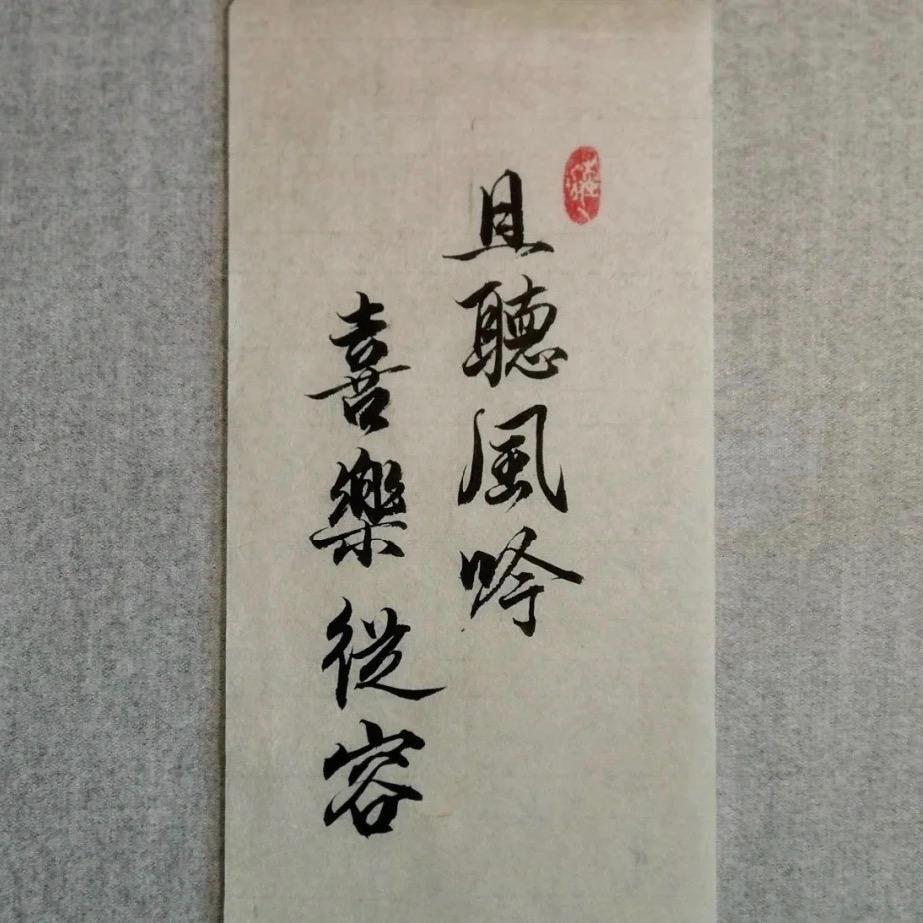 且聽風吟
喜樂從容